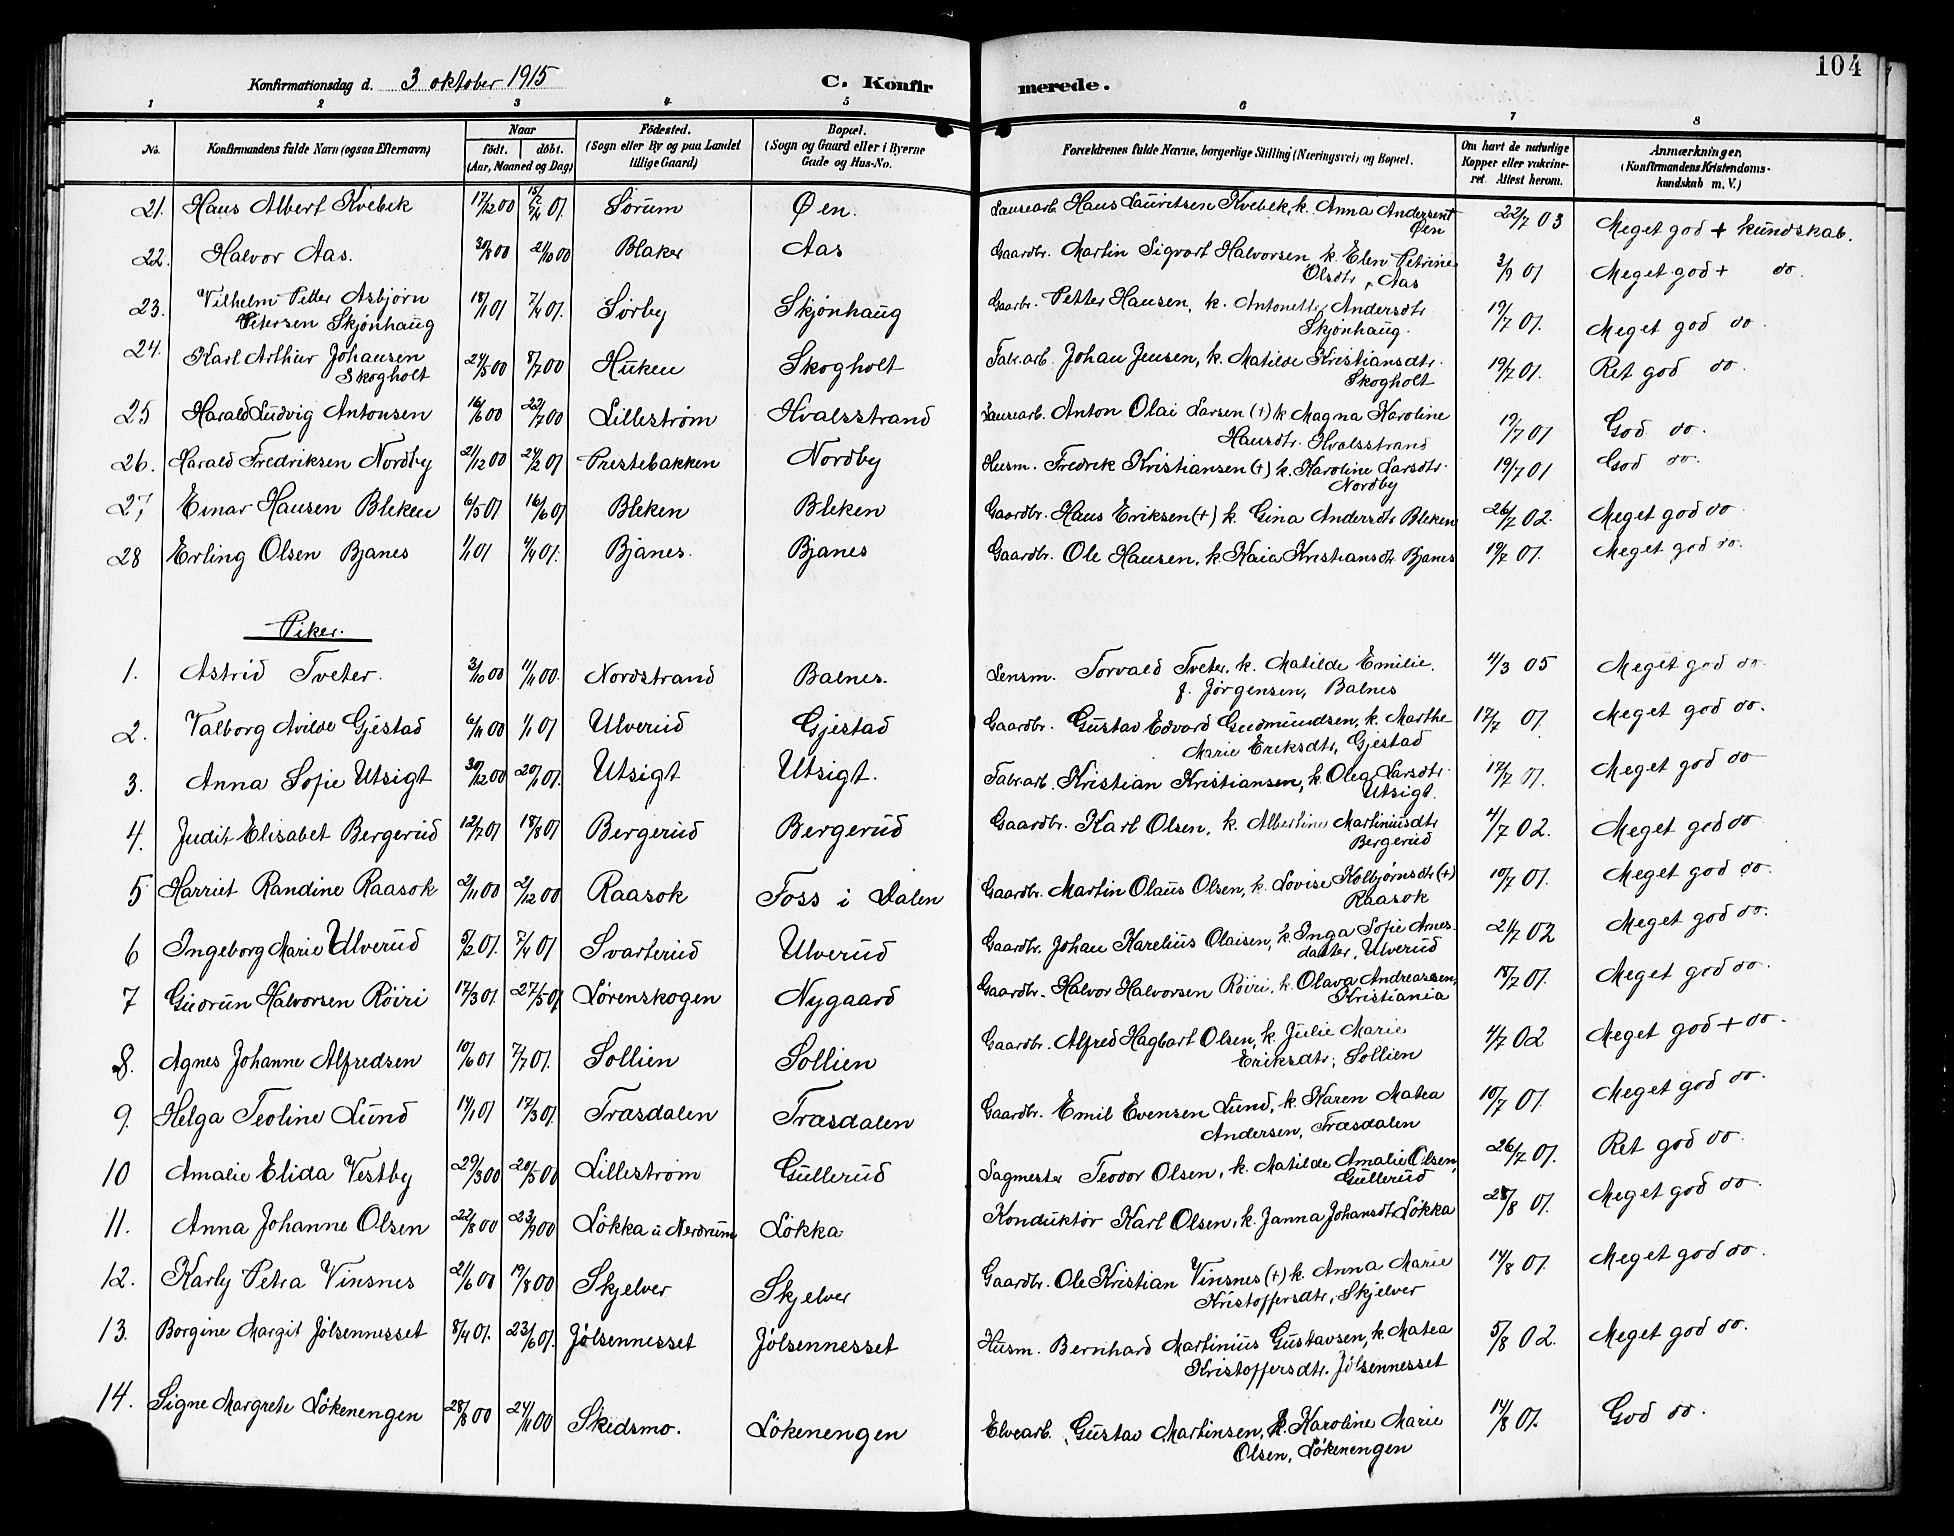 104
Konfirmationsdag d. 3 oktober 1915 C. Konfirmerede.
1 2 3 4 5 6 7 8
No. Konfirmandens fulde Navn (ogsaa Efternavn) Naar født. døbt. (Aar, Maaned og Dag) Fødested. (Sogn eller By og paa Landet tillige Gaard) Bopæl. (Sogn og Gaard eller i Byerne Gade og Hus-No. Forældrenes fulde Navne, borgerlige Stilling (Næringsvei) og Bopæl. Om havt de naturlige Kopper eller vakcineret. Attest herom. Anmærkninger. (Konfirmandens Kristendomskundskab m. V.)
21. Hans Albert Kvebek 17/12 00 Sørum Øen. Hans Lauritsen Kvebek, k. Anna Andersen 22/7 03 Meget god + kundskab.
Øen
22. Halvor Aas. 30/8 00 21/10 00 Blaker Aas Gaardbr. Martin Sigvart Halvorsen, k. Elen Petrine 3/9 01 Meget god + do.
Olsdtr, Aas
23. Vilhelm Petter Asbjørn 18/1 01 7/4 01. Sørby Skjønhaug Gaardbr. Petter Hansen, k. Antonette Andersdtr 19/7 01. Meget god do.
Petersen Skjønhaug Skjønhaug.
24. Karl Arthur Johansen 24/5 00 8/7 00 Huken Skogholt Fab.arb. Johan Jensen, k. Matilde Kristiansdtr. 19/7 01. Ret god do.
Skogholt Skogholt
25 Harald Ludvig Antonsen 16/6 00 22/7 00 Lillestrøm Hvalsstrand Anton Olai Larsen (+) k Magna Karoline 19/7 01 God do.
Hansdtr. Hvalsstrand
26. Harald Fredriksen Nordby 21/12 00 24/2 01 Prestebakken Nordby Husm. Fredrik Kristiansen (+) k. Karoline Larsdtr. 19/7 01 God do.
Nordby
27 Einar Hansen Bleken 6/5 01 16/6 01 Bleken Bleken Gaardbr. Hans Eriksen (+) k. Gina Andersdtr Bleken 26/7 02. Meget god do
28 Erling Olsen Bjanes 1/1 01 4/4 01. Bjanes. Bjanes Gaardbr. Ole Hansen, k. Kaia Kristiansdtr. Bjanes 19/7 01. Meget god do.
Piker.
1. Astrid Tveter. 3/10 00 11/11 00. Nordstrand Balnes. Lensm. Torvald Tveter, k. Matilde Emilie. 4/3 05 Meget god do.
f. Jørgensen, Balnes
2. Valborg Avilde Gjestad 6/11 00 1/1 01 Ulverud Gjestad Gaardbr. Gustav Edvard Gudmundsen, k. Marthe 17/7 01. Meget god do.
Marie Eriksdtr, Gjestad
3. Anna Sofie Utsigt 30/12 00 20/1 01. Utsigt Utsigt. Fabr.arb. Kristian Kristiansen, k. Olea Larsdtr. 17/7 01. Meget god do
Utsigt.
4. Judit Elisabet Bergerud 12/7 01 18/8 01 Bergerud Bergerud Gaardbr. Karl Olsen, k. Albertine Martiniusdtr 4/7 02. Meget god do
Bergerud
5 Harriet Randine Raasok 2/11 00 2/12 00 Raasok Foss i Dalen Gaardbr. Martin Olaus Olsen, k. Lovise Kolbjørnsdtr (+) 10/7 01. Meget god do.
Raasok
6 Ingeborg Marie Ulverud 5/2 01. 7/4 01 Svarterud Ulverud Gaardbr. Johan Karelius Olaisen, k. Inga Sofie Arnes- 21/7 02 Meget god do.
datter, Ulverud
7 Gudrun Halvorsen Röiri 17/3 01 27/5 01 Lørenskogen Nygaard Gaardbr. Halvor Halvorsen Röiri, k. Olava Andreassen, 18/7 01. Meget god do.
Kristiania
8. Agnes Johanne Alfredsen 10/6 01 7/7 01. Sollien Sollien Gaardbr. Alfred Hagbart Olsen, k Julie Marie 4/7 02 Meget god + do.
Eriksdtr, Sollien
9. Helga Teoline Lund 14/1 01 17/3 01 Trasdalen Trasdalen Gaardbr. Emil Evensen Lund, k. Karen Matea 10/7 01. Meget god do.
Andersen, Trasdalen
10 Amalie Elida Vestby 29/3 00 20/5 00 Lillestrøm Gullerud Sagmester Teodor Olsen, k. Matilde Amalie Olsen, 26/7 01. Ret god do.
Gullerud
11. Anna Johanne Olsen 22/8 00 23/9 00 Løkka u Nerdrum Løkka Konduktør Karl Olsen, k. Janna Johansdtr Løkka 28/8 01. Meget god do.
12. Karly Petra Vinsnes 21/6 00 19/8 00 Skjelver Skjelver Gaardbr. Ole Kristian Vinsnes (+) k. Anna Marie 14/8 01. Meget god do.
Kristoffersdtr, Skjelver
13. Borgine Margit Jølsennesset 8/4 01. 23/6 01. Jølsennesset Jølsennesset Husm. Bernhard Martinius Gustavsen, k. Matea 5/8 02. Meget god do.
Kristoffersdtr. Jølsennesset
14. Signe Margrete Løkenengen 28/8 00 24/11 00 Skedsmo. Løkenengen Elvearb. Gustav Martinsen, k. Karoline Marie 14/8 01. God do.
Olsen, Løkenengen